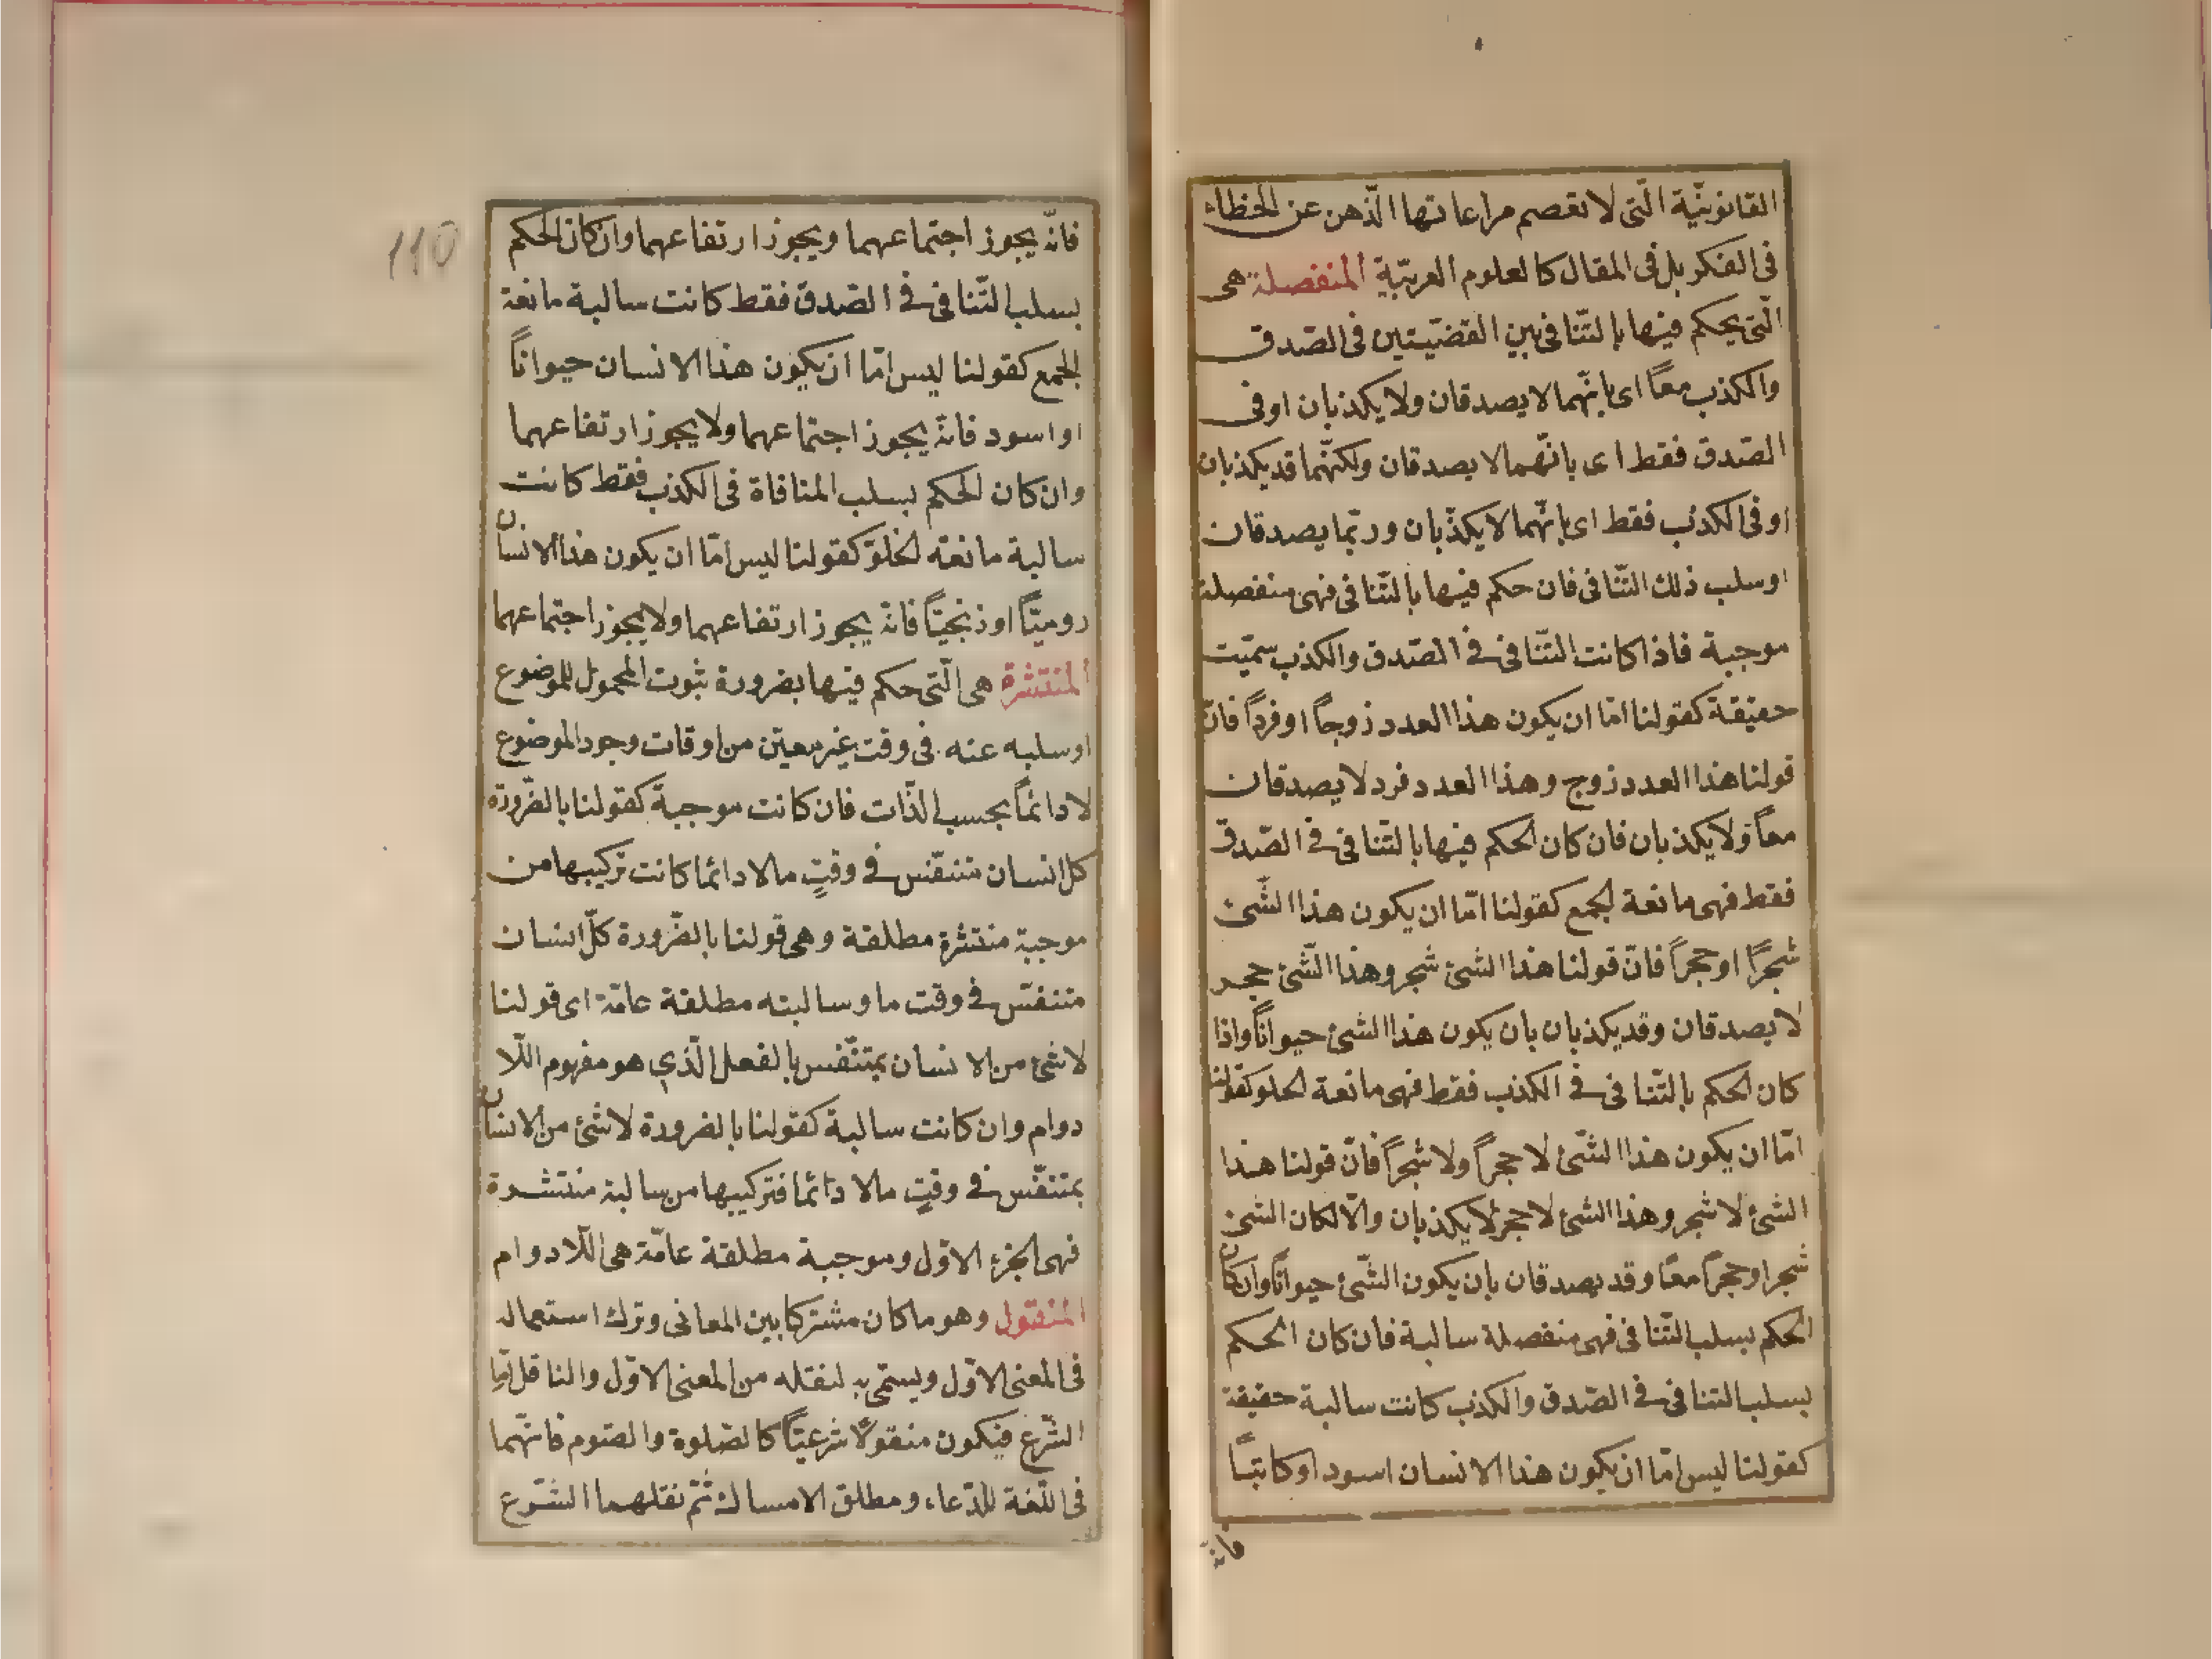 القانونيّة الّتى لا تعصم مراعاتها الّذهن عن الخطاء
فى الفكر بل فى المقال كالعلوم العربيّة المنفصلة هى
الّتى يحكم فيها بالتّنافى بين القضيّتين فى الصّدق
والكذب معاً اى بانّهما لا يصدقان ولا يكذبان او فى
الصّدق فقط اى بانّهما لا يصدقان ولكنّهما قد يكذبان
او فى الكذب فقط اى بانّهما لا يكذبان وربّما يصدقان
او سلب ذلك التّنافى فان حكم فيها بالتّنافى فهى منفصلة
موجبة فاذا كانت التّنافى فى الصّدق والكذب سمّيت
حقيقة كقولنا امّا ان يكون هذا العدد زوجاً او فرداً فانّ
قولنا هذا العدد زوج وهذا العدد فرد لا يصدقان
معاً ولا يكذبان فان كان الحكم فيها بالتّنافى فى الصّدق
فقط فهى مانعة الجمع كقولنا امّا ان يكون هذا الشّئ
شجراً او حجراً فانّ قولنا هذا الشئ شجر وهذا الشّئ حجر
لا يصدقان وقد يكذبان بان يكون هذا الشئ حيواناً واذا
كان الحكم بالتّنافى فى الكذب فقط فهى مانعة الخلو كقولنا
امّا ان يكون هذا الشّئ لا حجراً ولا شجراً فانّ قولنا هذا
الشئ لا شجر وهذا الشئ لا حجر لا يكذبان والّا لكان الشئ
شجرا وحجراً معًا وقد يصدقان بان يكون الشّئ حيواناً وان كان
الحكم بسلب التّنافى فهى منفصلة سالبة فان كان الحكم
بسلب التنافى فى الصّدق والكذب كانت سالبة حقيقة
كقولنا ليس امّا ان يكون هذا الانسان اسود او كاتبًا
فانّه
110
فانّه يجوز اجتماعهما ويجوز ارتفاعهما وان كان الحكم
بسلب التّنافى فى الصّدق فقط كانت سالبة مانعة
الجمع كقولنا ليس امّا ان يكون هذا الانسان حيواناً
او اسود فانّه يجوز اجتماعهما ولا يجوز ارتفاعهما
وان كان الحكم بسلب المنافاة فى الكذب فقط كانت
سالبة مانعة الخلوّ كقولنا ليس امّا ان يكون هذا الانسان
روميّاً او زنجيّاً فانّه يجوز ارتفاعهما ولا يجوز اجتماعهما
المنتشرة هى الّتى حكم فيها بضرورة ثبوت المحمول للموضوع
او سلبه عنه فى وقت غير معيّن من اوقات وجود الموضوع
لا دائماً بحسب الذّات فان كانت موجبة كقولنا بالضّرورة
كل انسان متنفّس فى وقتٍ ما لا دائما كانت تركيبها من
موجبة منتشرة مطلقة وهى قولنا بالضّرورة كلّ انسان
متنفّس فى وقت ما وسالبته مطلقة عامّة اى قولنا
لا شئ من الانسان بمتنّفس بالفعل الّذي هو مفهوم اللّا
دوام وان كانت سالبة كقولنا بالضرورة لا شئ من الانسان
بمتنفّس فى وقتٍ ما لا دائما فتركيبها من سالبة منتشرة
فهى الجزء الاوّل وموجبة مطلقة عامّة هى اللّا دوام
المنقول وهو ما كان مشتركا بين المعانى وترك استعماله
فى المعنى الاوّل ويسمّى به لنقله من المعنى الاوّل والناقل امّا
الشّرع فيكون منقولًا شرعيّاً كالصّلوة والصّوم فانّهما
فى اللّغة للدّعاء ومطلق الامساك ثمّ نقلهما الشّرع